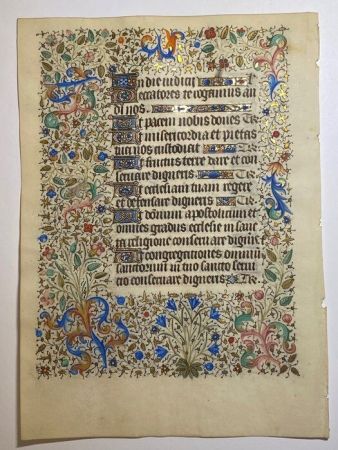 In die iudicii
Peccatores te rogamus au
di nos.
Ut pacem nobis dones Te
Ut misericordia et pietas
tua nos custodiat Te
Ut fructus terre dare et con
seruare digneris Te
Ut ecclesiam tuam regere
et defensare digneris Te
Ut domnum apostolicum et
omnes gradus ecclesie in sanc
ta religione conseruare digne
Ut congregationes omnium
sanctorum in tuo sancto serui
cio conseruare digneris Te